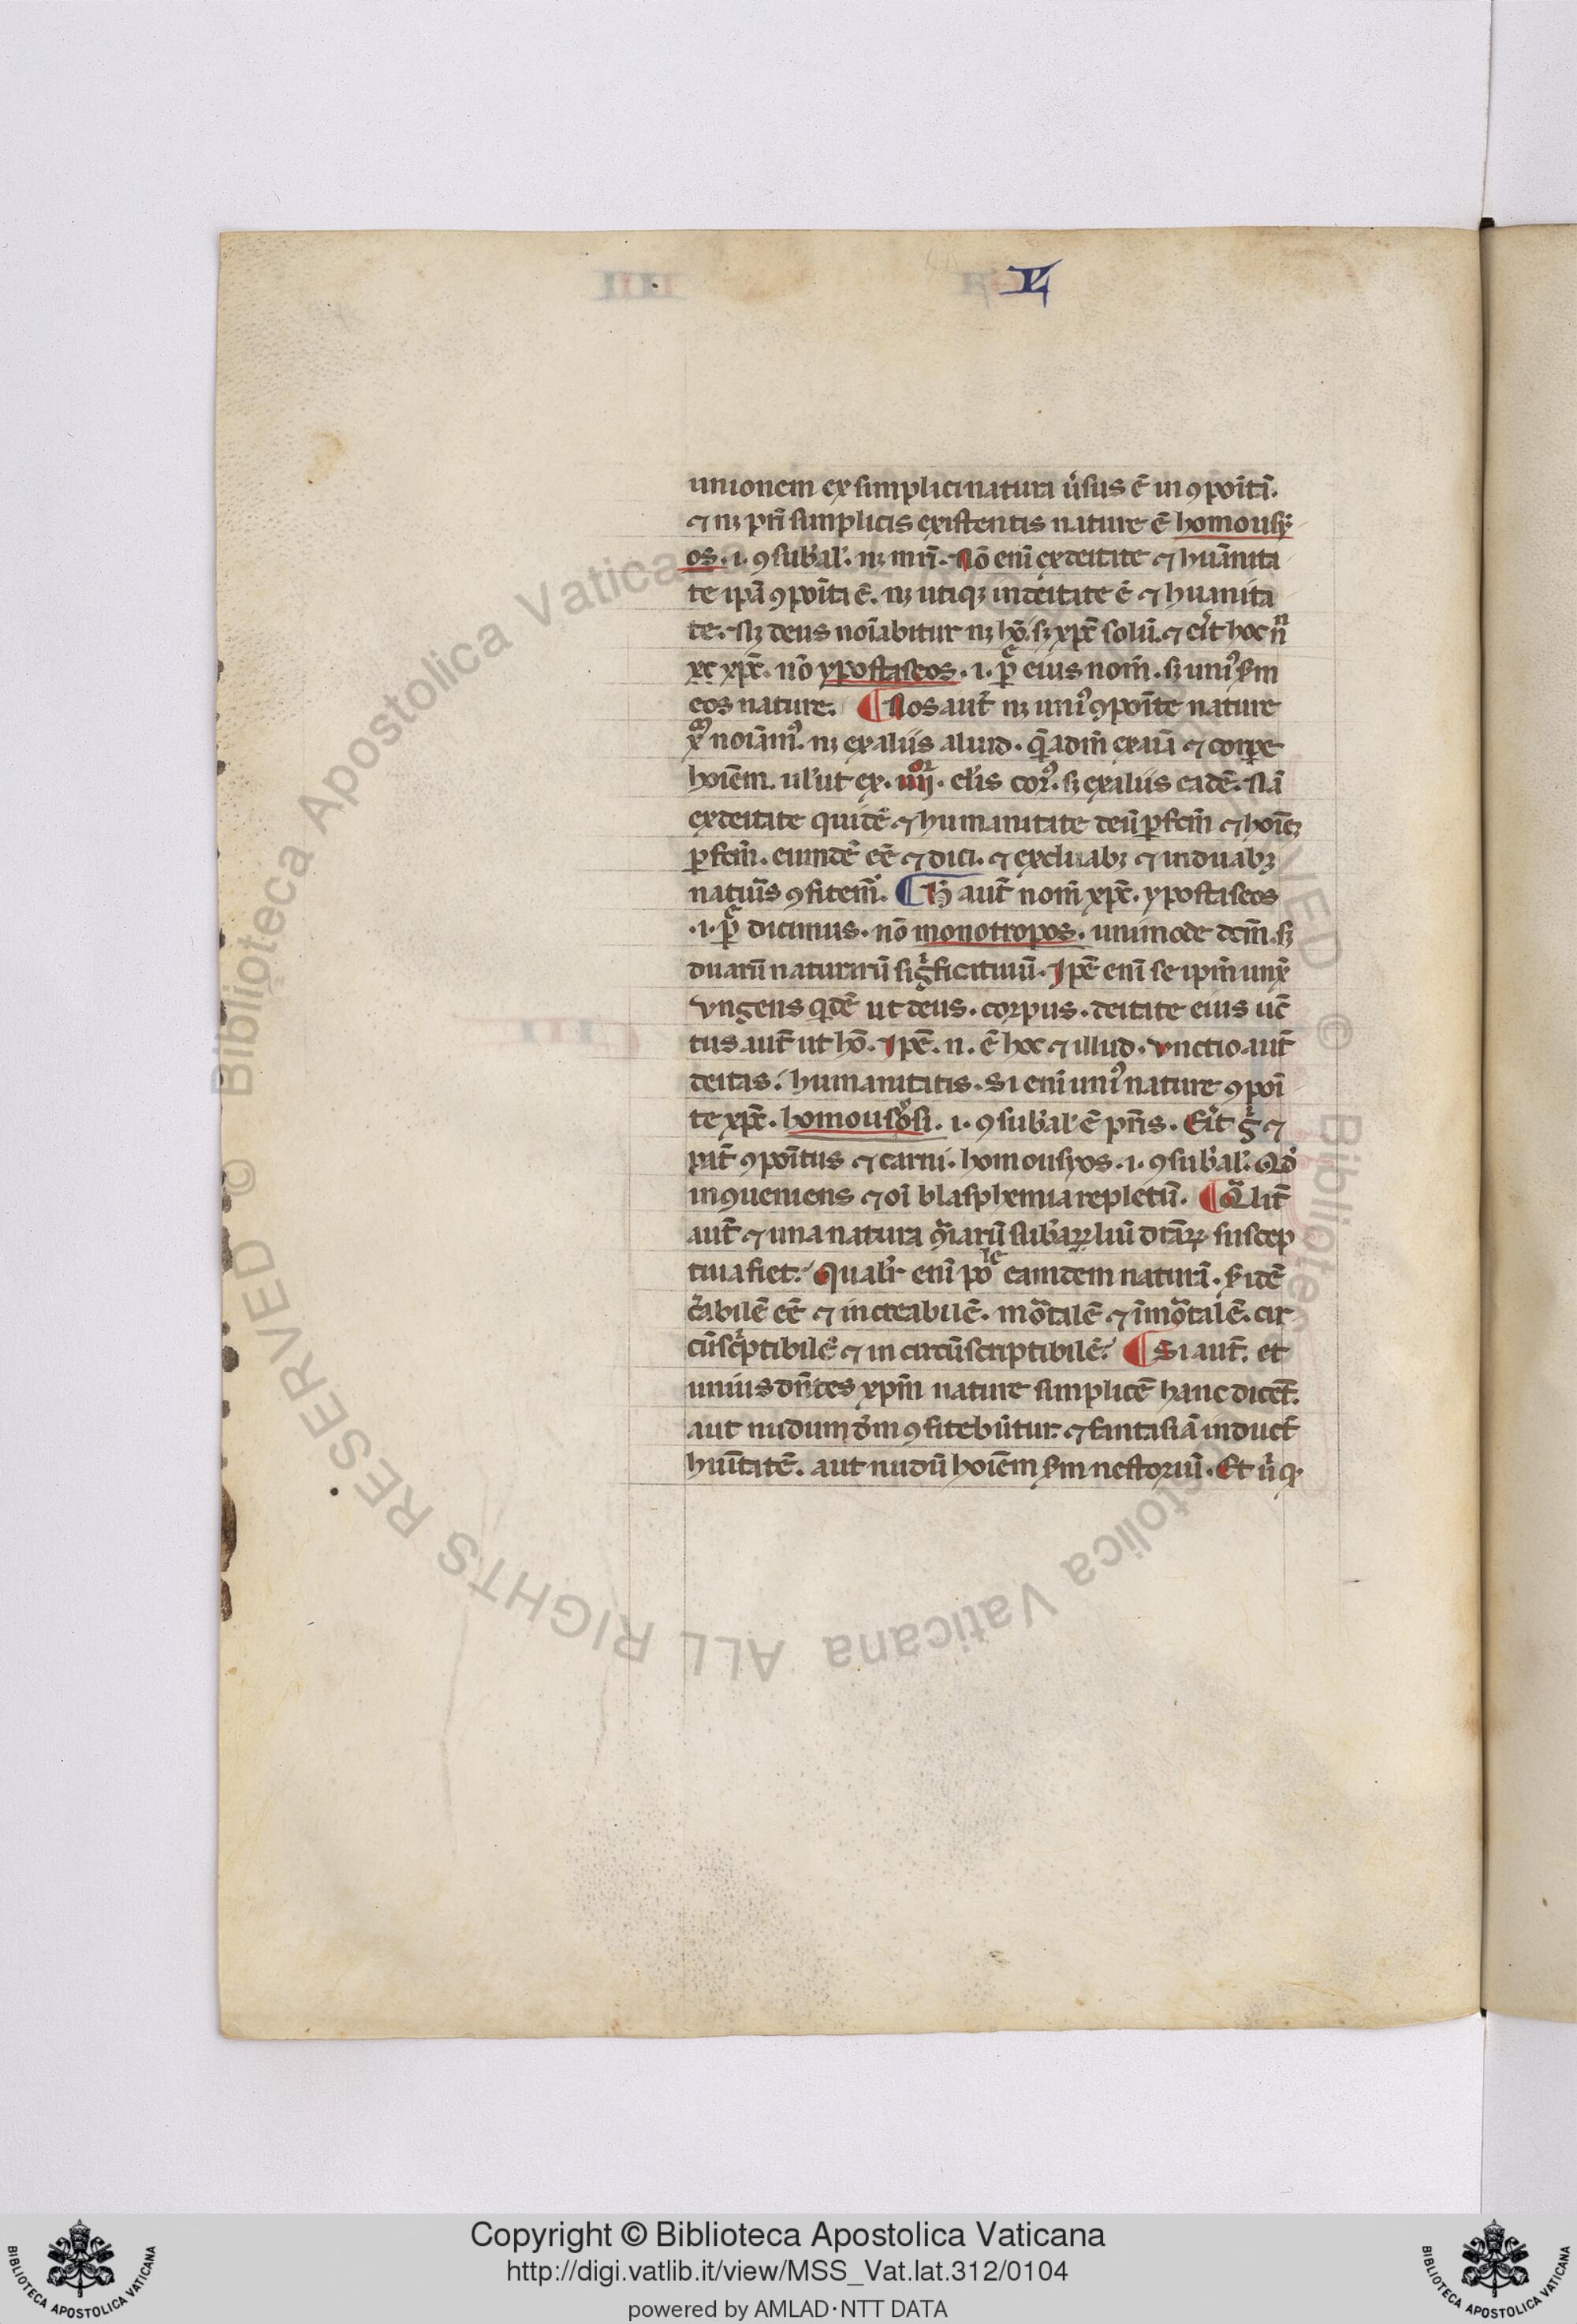 L
unionem ex simplici natura ůsus ē in ꝯpoı̄tā.
⁊ nꝫ pr̄i simplicis existentis nature ē homousy
os. i. ꝯsub̓al̓. nꝫ mr̄i. Nō eni̅ ex deitate ⁊ hūanita
te ip̄a ꝯpoı̄ta ē. nꝫ utiqꝫ in deitate ē ⁊ huanita
te. Nꝫ deus noı̄abitur nꝫ hō. sꝫ xp̄c solū. ⁊ er̓it hoc
xp̄c. nō ypostaseos. i. eius nom̄. sꝫ uniꝰ
eos nature. ¶ Nos aut̄ nꝫ uniꝰ ꝯpoı̄te nature
noı̄amꝰ. nꝫ ex aliis aliud. ex aīa ⁊ corpe
hoı̄em. ul̓ ut ex. iiij. el̓is corꝰ. sꝫ ex aliis eadē. Nā
ex deitate quidē ⁊ humanitate deū ꝑfc̄m ⁊ hoı̄ēꝫ
ꝑfc̄m. eumdē eē ⁊ dici. ⁊ ex duabꝫ ⁊ in duabꝫ
natur̄is ꝯfitemꝰ. ¶ H̄ aut̄ nom̄ xp̄c. ypostaseos
.i. dicimus. nō monotropos. unimode dcm̄. sꝫ
duarū naturarū sig̓ficatiuū. Ip̄e eni̅ se ip̄m unx̓
vngens qꝺē ut deus. corpus. deitate eius uc̄
tus aut̄ ut hō. Ip̄e. n. ē hoc ⁊ illud. vnctio aut̄
deitas. humanitatis. Si eni̅ uniꝰ nature ꝯpoı̄
te xp̄c. homousyosi. i. ꝯsub̓al̓ ē pr̄is. Er̓it g̓ ⁊
pat̄ ꝯpoı̄tus ⁊ carni. homousyos. i. ꝯsub̓al̓. Qd̓
inꝯueniens ⁊ oı̄ blasphemia repletū. ¶ Qual̓it̄
aut̄ ⁊ una natura ꝯ̓iarū sub̓alium dr̄arꝝ suscep
tiua fiet. Qualr̓ eni̅ eamdem naturā. idē
c̓abilē eē ⁊ increabilē. moᵃtalē ⁊ īmoᵃtalē. cir
cūsc̓ptibilē ⁊ in circūscriptibilē. ¶ Si aut̄. et
unius dn̄tes xp̄m nature simplicē hanc dicēt.
aut nudum dm̄ ꝯfitebūtur. ⁊ fantasiā inducēt
huı̄tatē. aut nudū hoı̄em nestoriū. Et
Copyright © Biblioteca Apostolica Vaticana
http://digi.vatlib.it/view/MSS_Vat.lat.312/0104
powered by AMLAD·NTT DATA
BIBLIOTECA APOSTOLICA VATICANA
BIBLIOTECA APOSTOLICA VATICANA
© Biblioteca Apostolica Vaticana ALL RIGHTS RESERVED